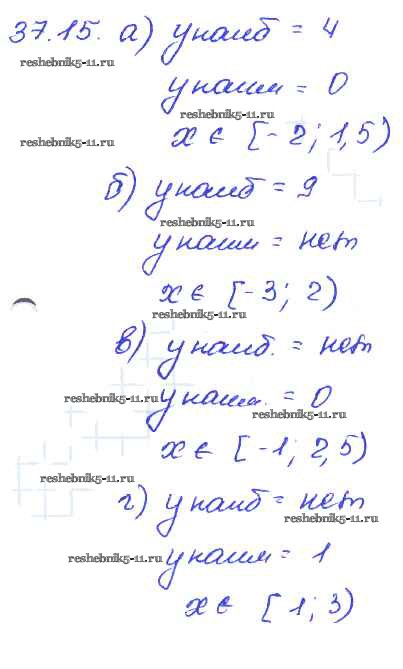 37.15. а) yнаиб = 4
reshebnik5-11.ru
yнаим = 0
reshebnik5-11.ru
reshebnik5-11.ru
x ∈ [-2; 1,5)
б) yнаиб = 9
reshebnik5-11.ru
yнаим = нет
x ∈ [-3; 2)
reshebnik5-11.ru
в) yнаиб. = нет
reshebnik5-11.ru
yнаим. = 0
reshebnik5-11.ru
x ∈ [-1; 2,5)
reshebnik5-11.ru
г) yнаиб = нет
reshebnik5-11.ru
reshebnik5-11.ru
yнаим = 1
x ∈ [1; 3)